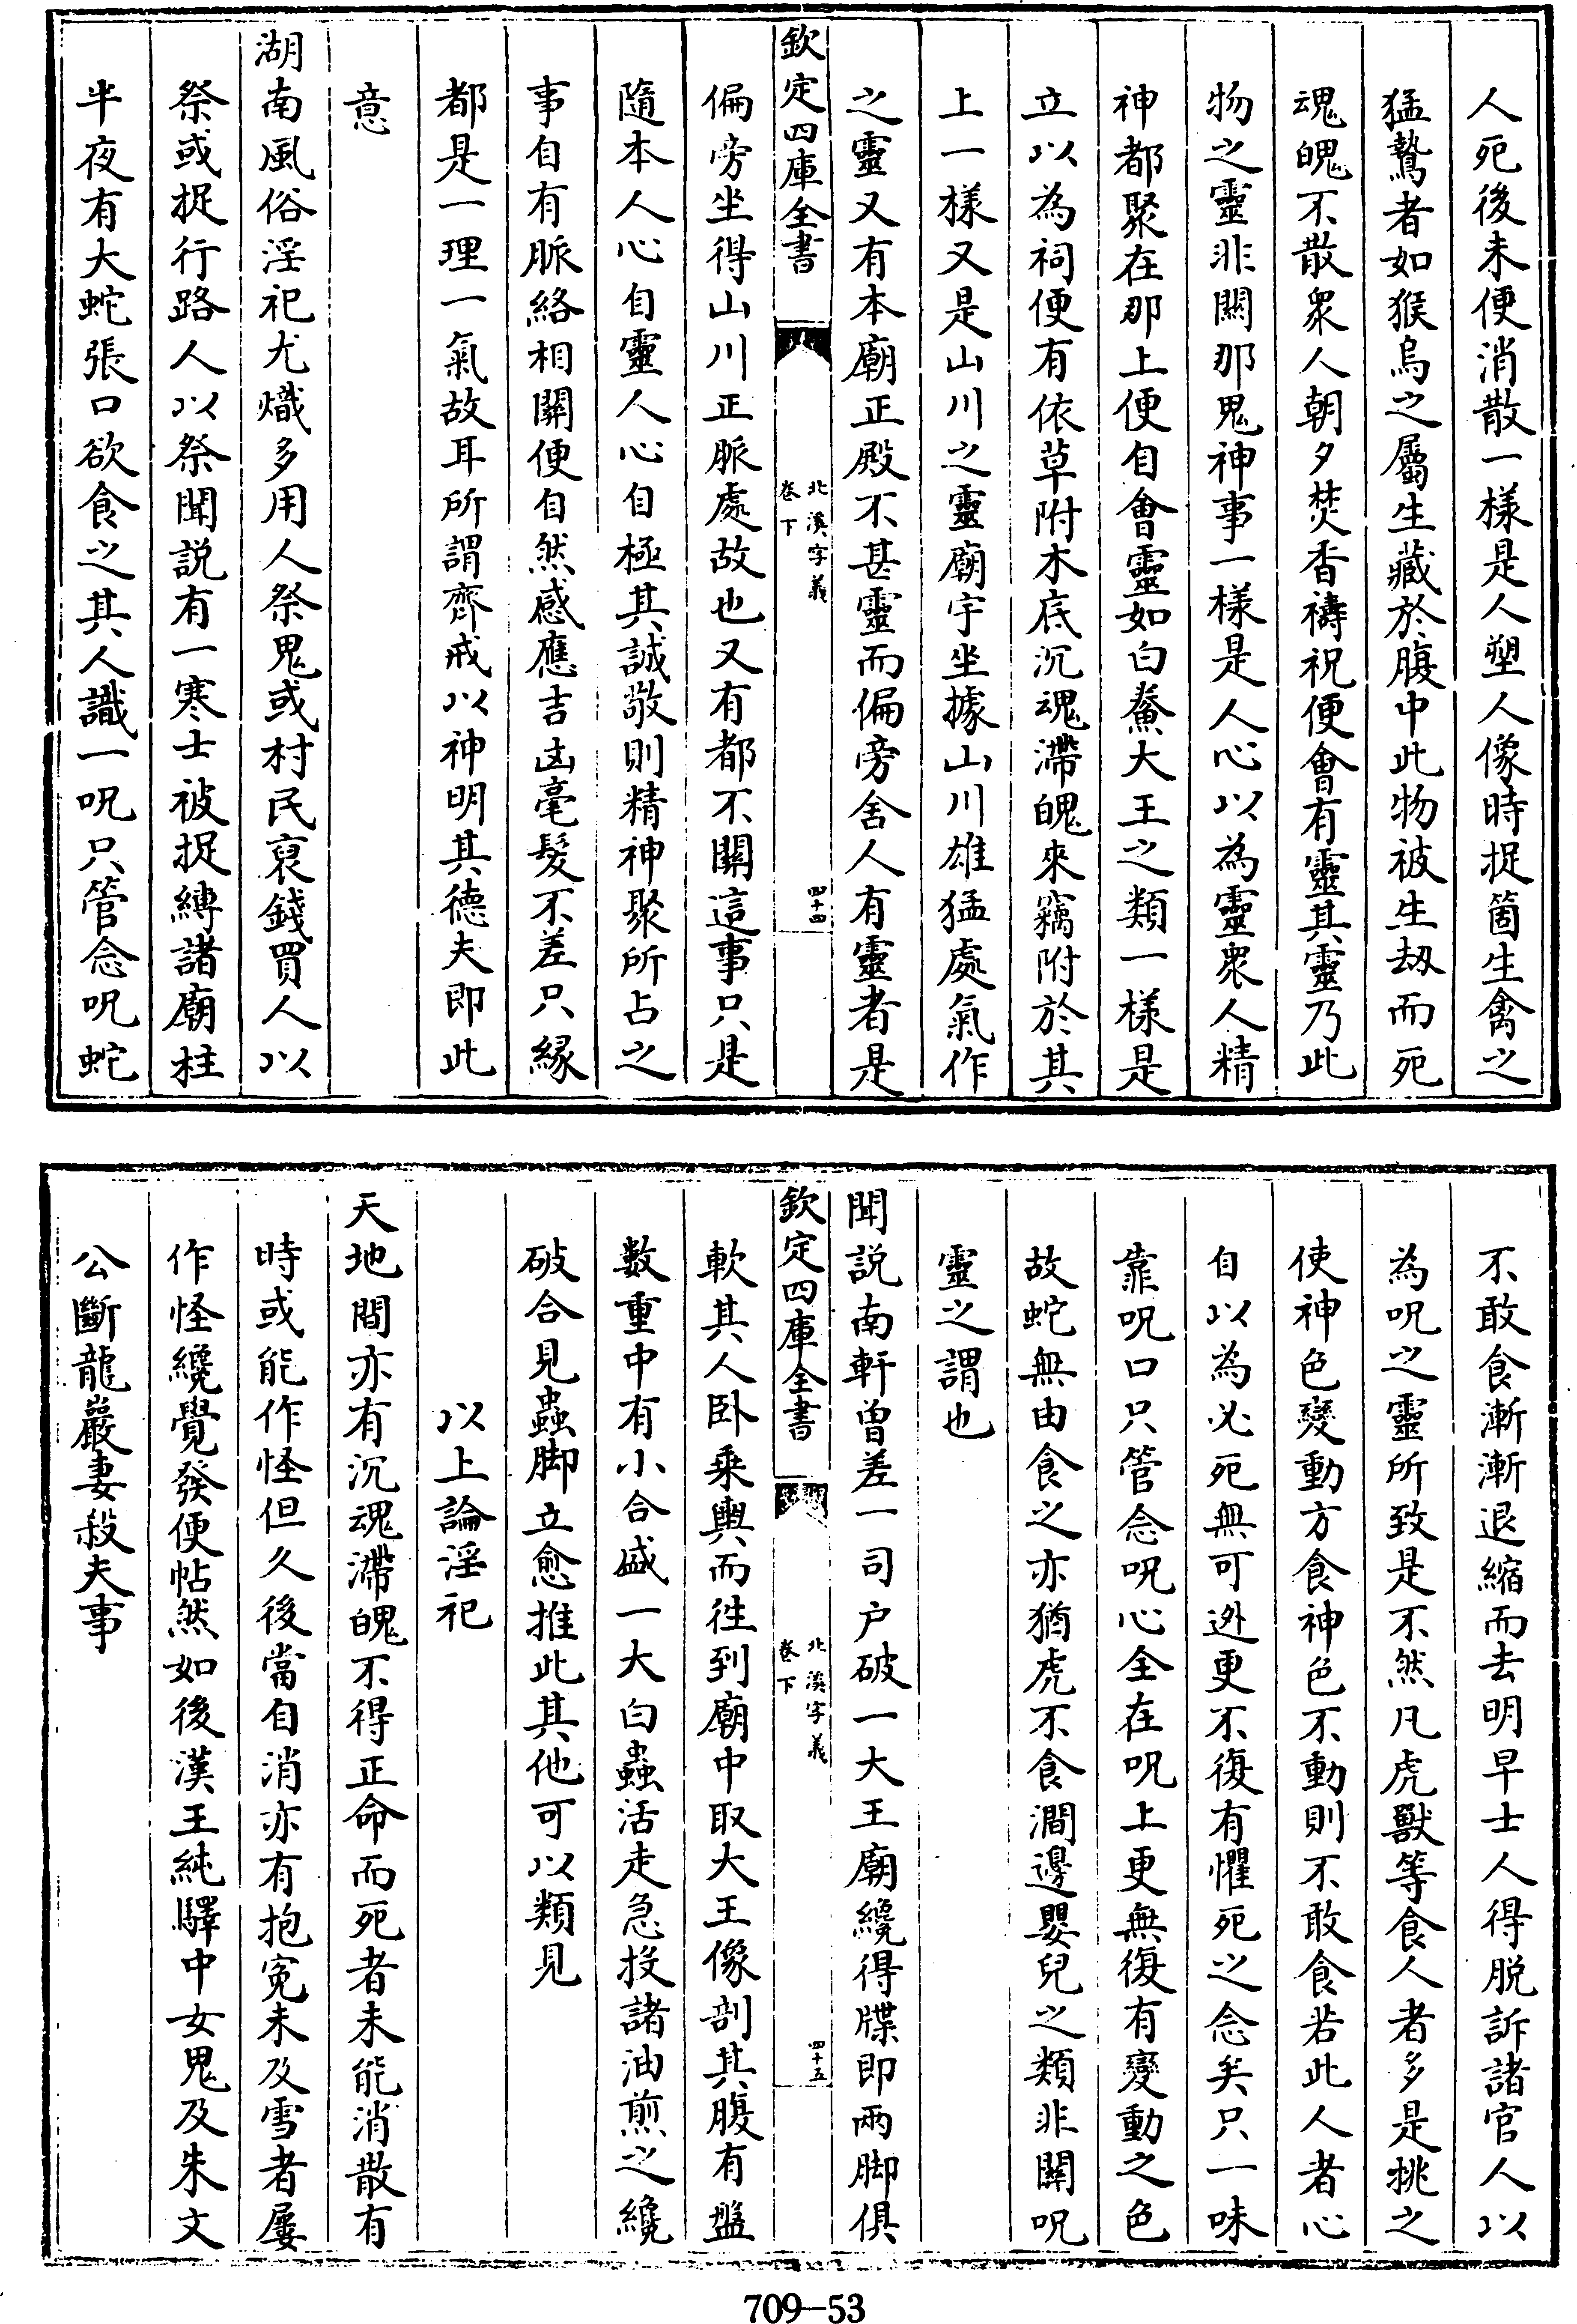 人死後未便消散一樣是人塑人像時捉箇生禽之
猛鷙者如猴鳥之屬生藏於腹中此物被生刼而死
魂魄不散衆人朝夕焚香禱祝便會有靈其靈乃此
物之靈非關那鬼神事一樣是人心以為靈衆人精
神都聚在那上便自會靈如白鮝大王之類一樣是
立以為祠便有依草附木底沉魂滯魄來竊附於其
上一樣又是山川之靈廟宇坐據山川雄猛處氣作
之靈又有本廟正殿不甚靈而偏旁舍人有靈者是
欽定四庫全書
北溪字義
卷下
四十四
偏旁坐得山川正脈處故也又有都不關這事只是
隨本人心自靈人心自極其誠敬則精神聚所占之
事自有脈絡相關便自然感應吉凶毫髮不差只緣
都是一理一氣故耳所謂齊戒以神明其德夫即此
意
湖南風俗淫祀尤熾多用人祭鬼或村民裒錢買人以
祭或捉行路人以祭聞説有一寒士被捉縛諸廟柱
半夜有大蛇張口欲食之其人識一呪只管念呪蛇
不敢食漸漸退縮而去明早士人得脱訴諸官人以
為呪之靈所致是不然凡虎獸等食人者多是挑之
使神色變動方食神色不動則不敢食若此人者心
自以為必死無可逃更不復有懼死之念矣只一味
靠呪口只管念呪心全在呪上更無復有變動之色
故蛇無由食之亦猶虎不食澗邊嬰兒之類非關呪
靈之謂也
聞説南軒曾差一司户破一大王廟纔得牒即兩脚俱
欽定四庫全書
北溪字義
卷下
四十五
軟其人卧乘輿而徃到廟中取大王像剖其腹有盤
數重中有小合盛一大白蟲活走急投諸油煎之纔
破合見蟲脚立愈推此其他可以類見
以上論淫祀
天地間亦有沉魂滯魄不得正命而死者未能消散有
時或能作怪但久後當自消亦有抱寃未及雪者屢
作怪纔覺發便帖然如後漢王純驛中女鬼及朱文
公斷龍巖妻殺夫事
709-53